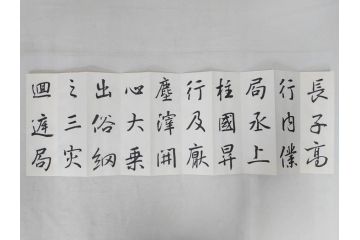 長子高
行内僕
局丞上
柱國昇
行及厥
塵滓開
心大乗
出俗網
之三灾
迴局